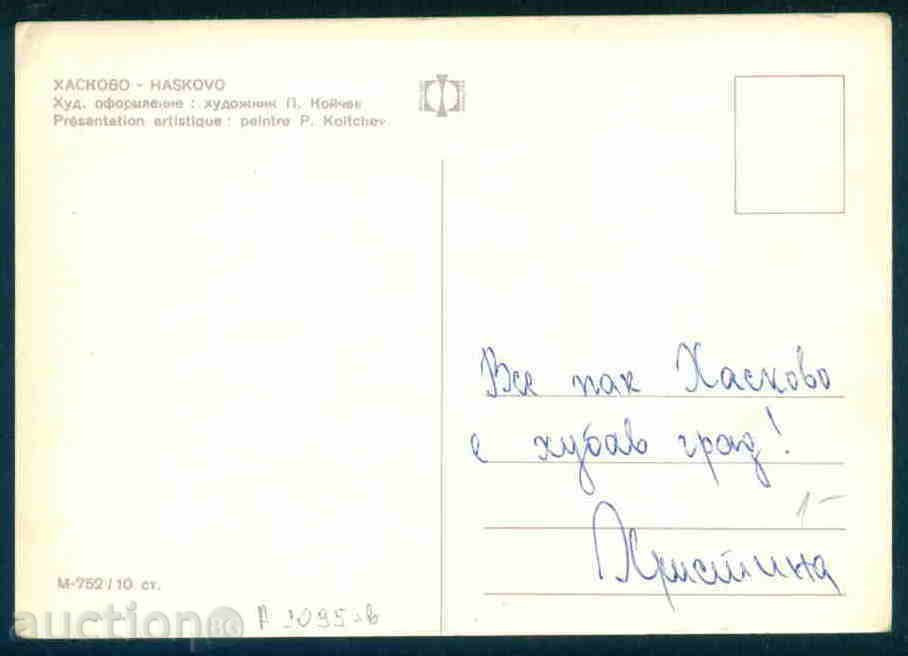 ХАСКОВО - HASKOVO
Худ. оформление : художник П. Койчев
Présentation artistique : peintre P. Koitchev
Все пак Хасково
е хубав град!
Християна
1-
М-752 / 10 ст.
auction BG